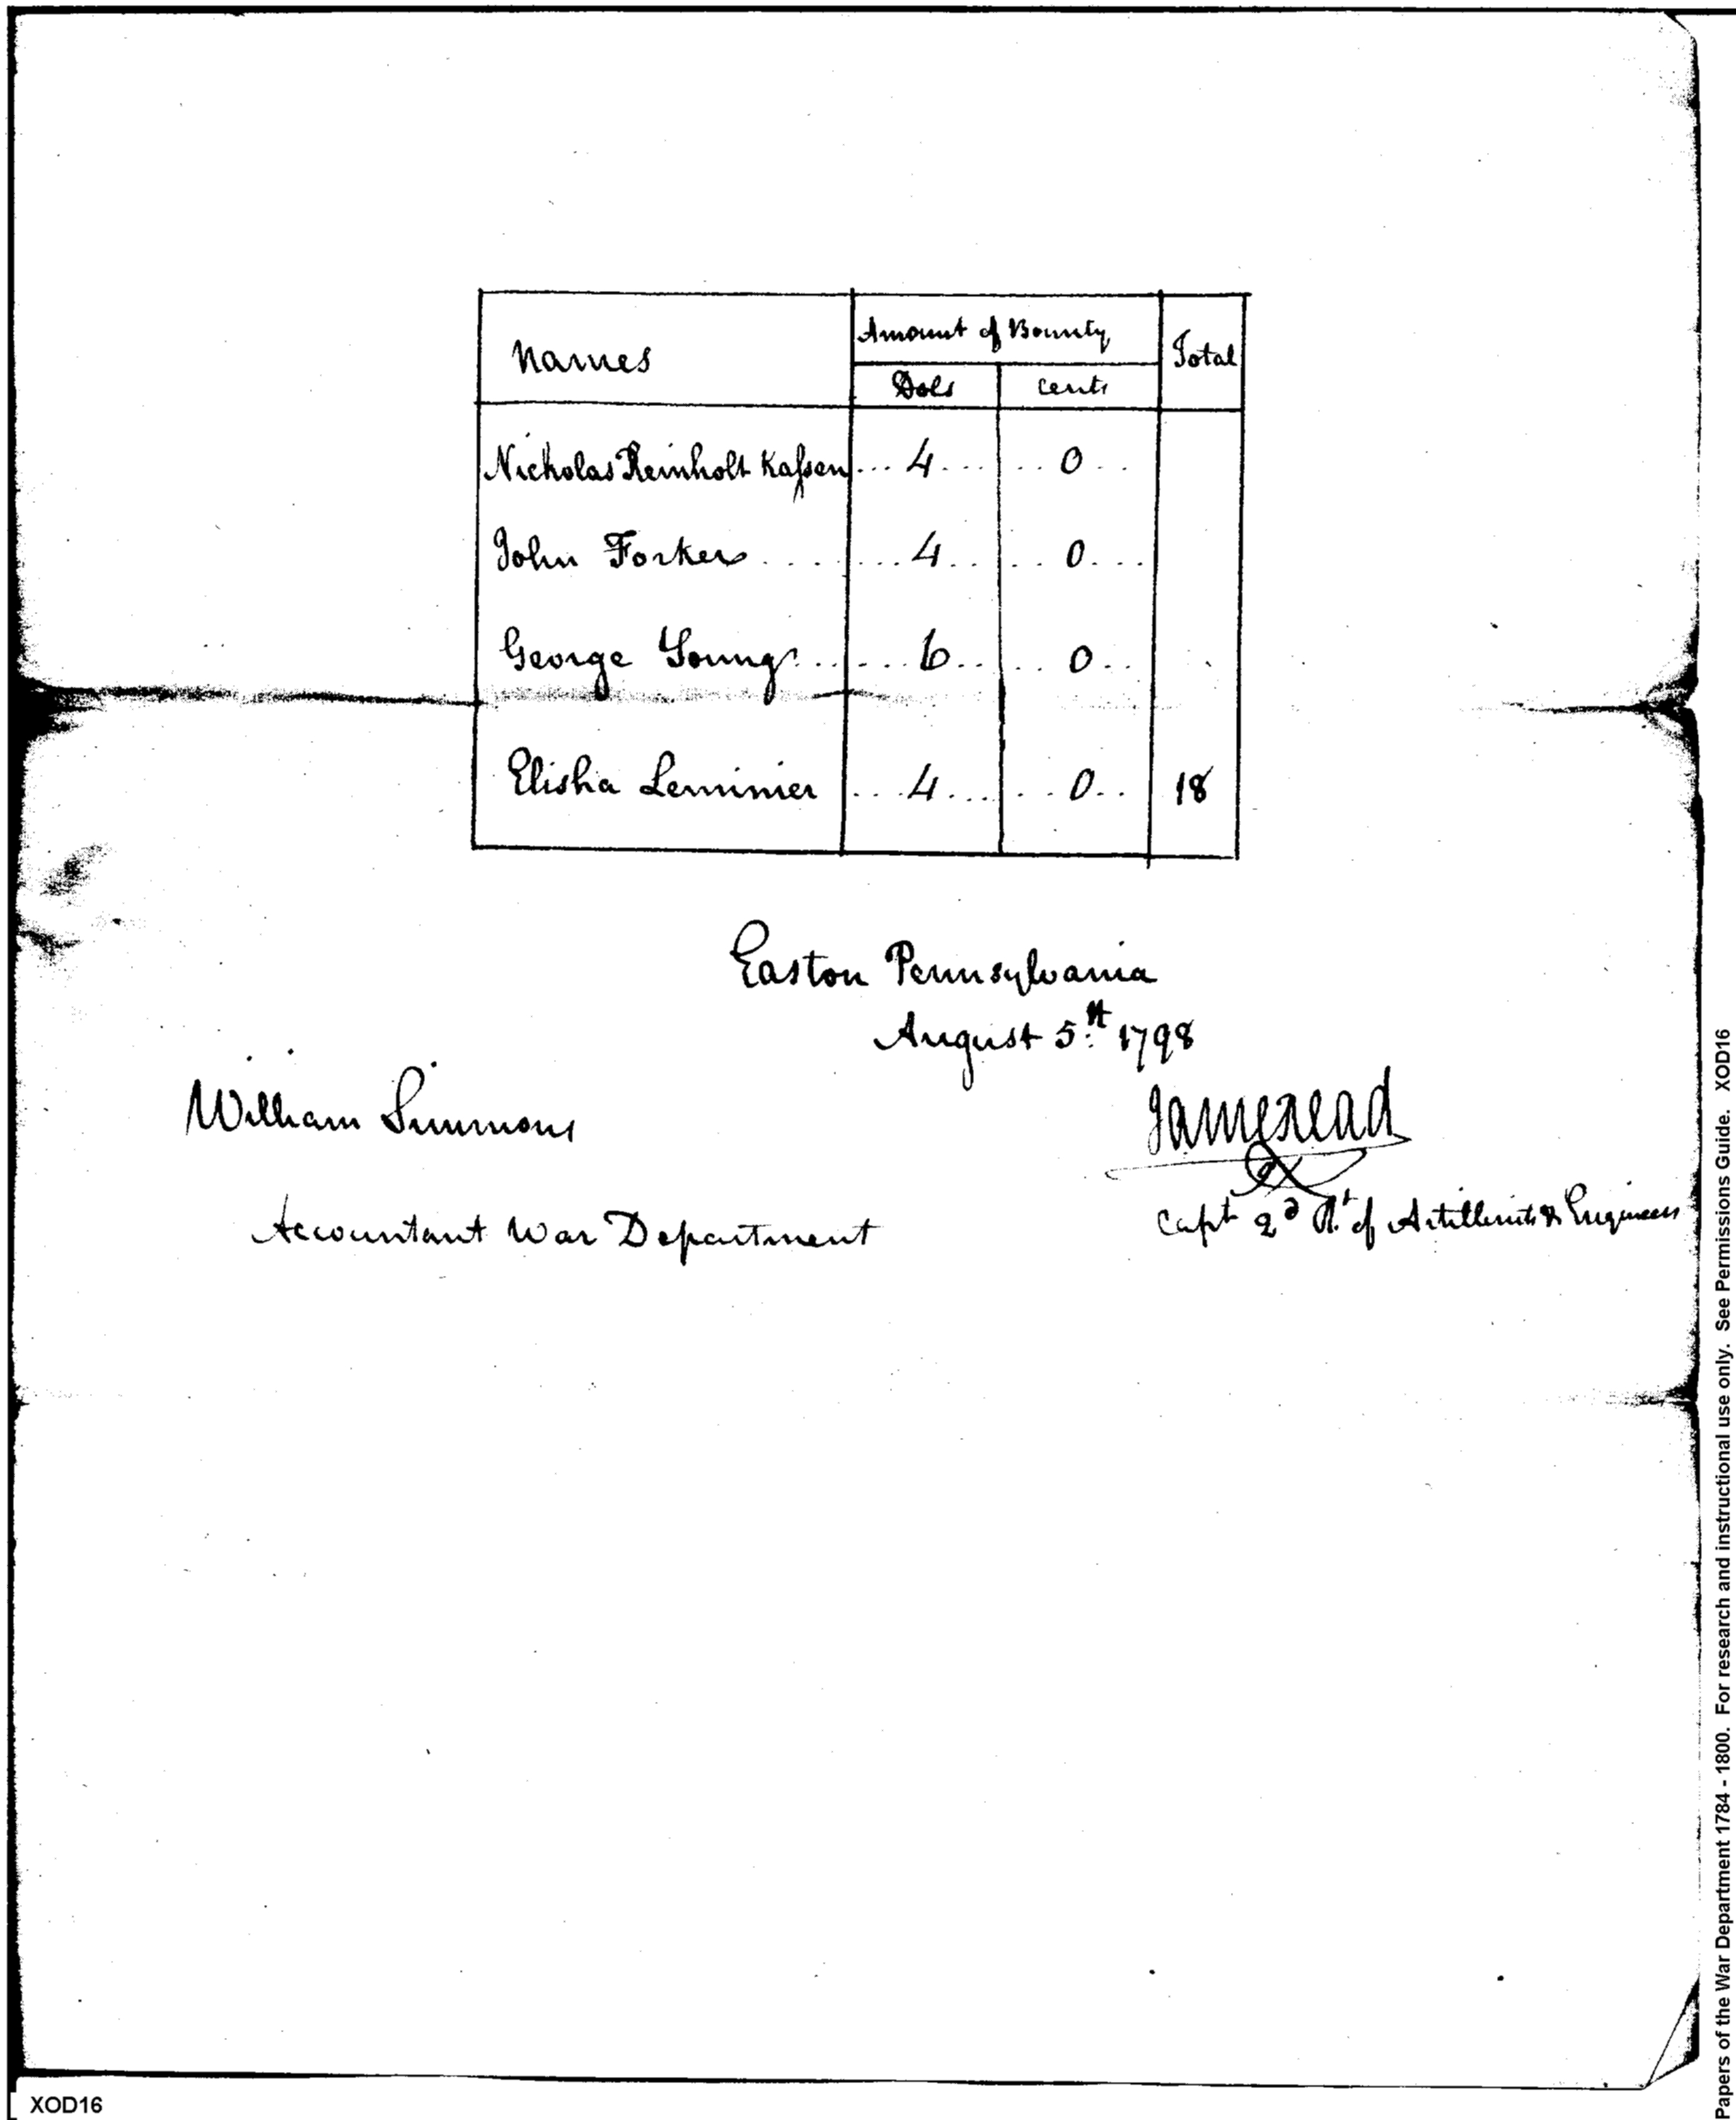 Names Amount of Bounty Total
Dols cents
Nickolas Reinholt Kaſsen ... 4 ... ... 0 ...
John Forker ... 4 ... ... 0 ...
George Young ... 6 ... ... 0 ...
Elisha Leminier ... 4 ... ... 0 ... 18
Easton Pennsylvania
August 5th 1798
William Simmons
James Read
Accountant War Department
Capt 2d Rt of Artillerists & Engineers
XOD16
Papers of the War Department 1784 - 1800. For research and instructional use only. See Permissions Guide. XOD16